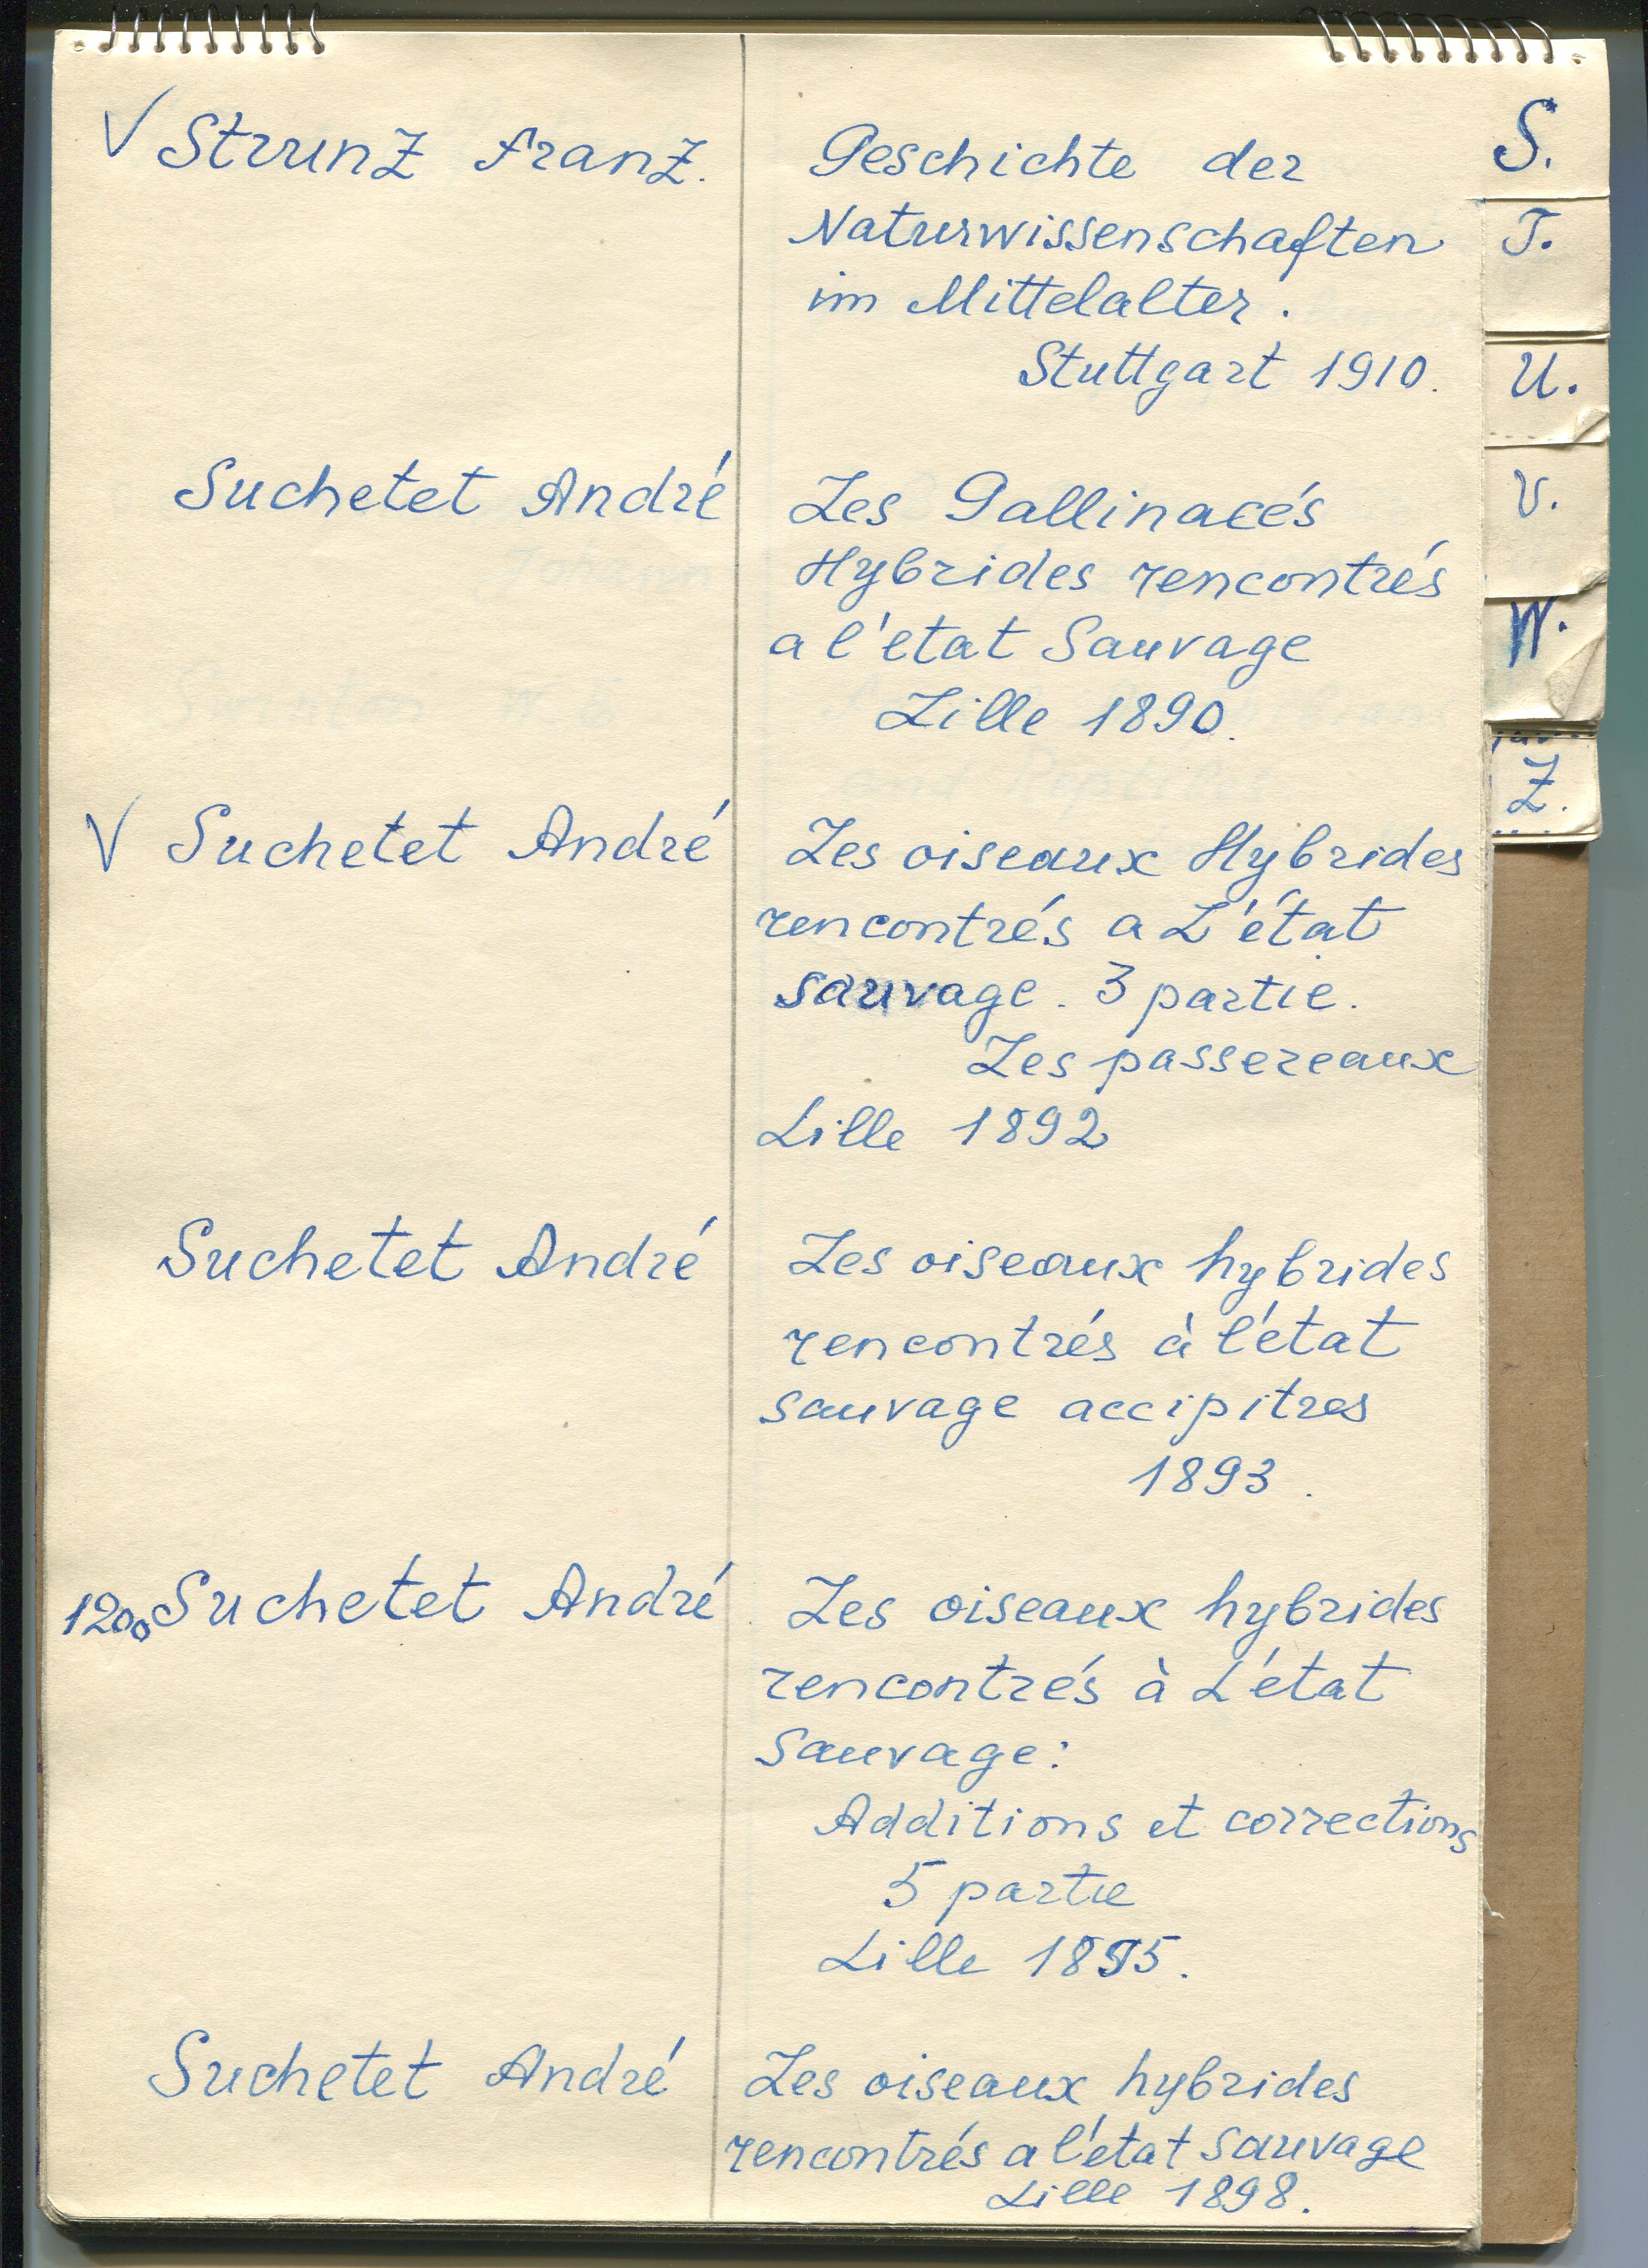 V Strunz Franz.
Geschichte der
Naturwissenschaften
im Mittelalter.
Stuttgart 1910.
Suchetet André
Les Gallinacés
Hybrides rencontrés
a l'etat Sauvage
Lille 1890.
V Suchetet André
Les oiseaux Hybrides
rencontrés a L'état
sauvage. 3 partie.
Les passereaux
Lille 1892
Suchetet André
Les oiseaux hybrides
rencontrés à l'état
sauvage accipitres
1893.
1200 Suchetet André
Les oiseaux hybrides
rencontrés à L'état
Sauvage:
Additions et corrections
5 partie
Lille 1895.
Suchetet André
Les oiseaux hybrides
rencontrés a l'état sauvage
Lille 1898.
S.
T.
U.
V.
W.
Z.